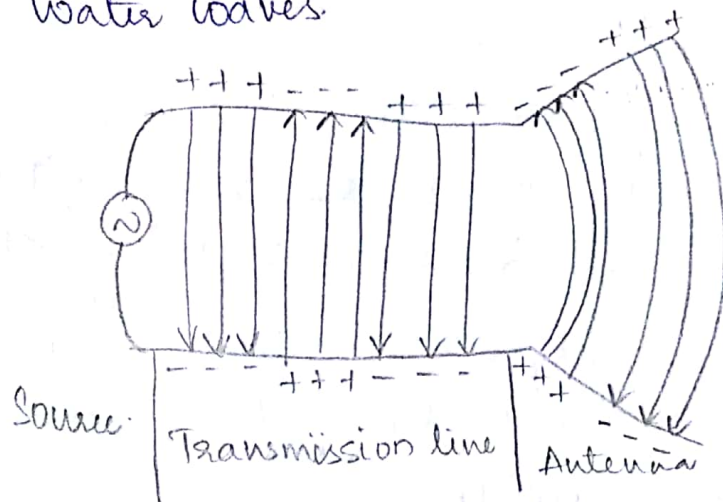 Water waves.
+ + + - - - + + + - - - + + +
~
- - - + + + - - - + + + - - -
Source.
Transmission line
Antenna